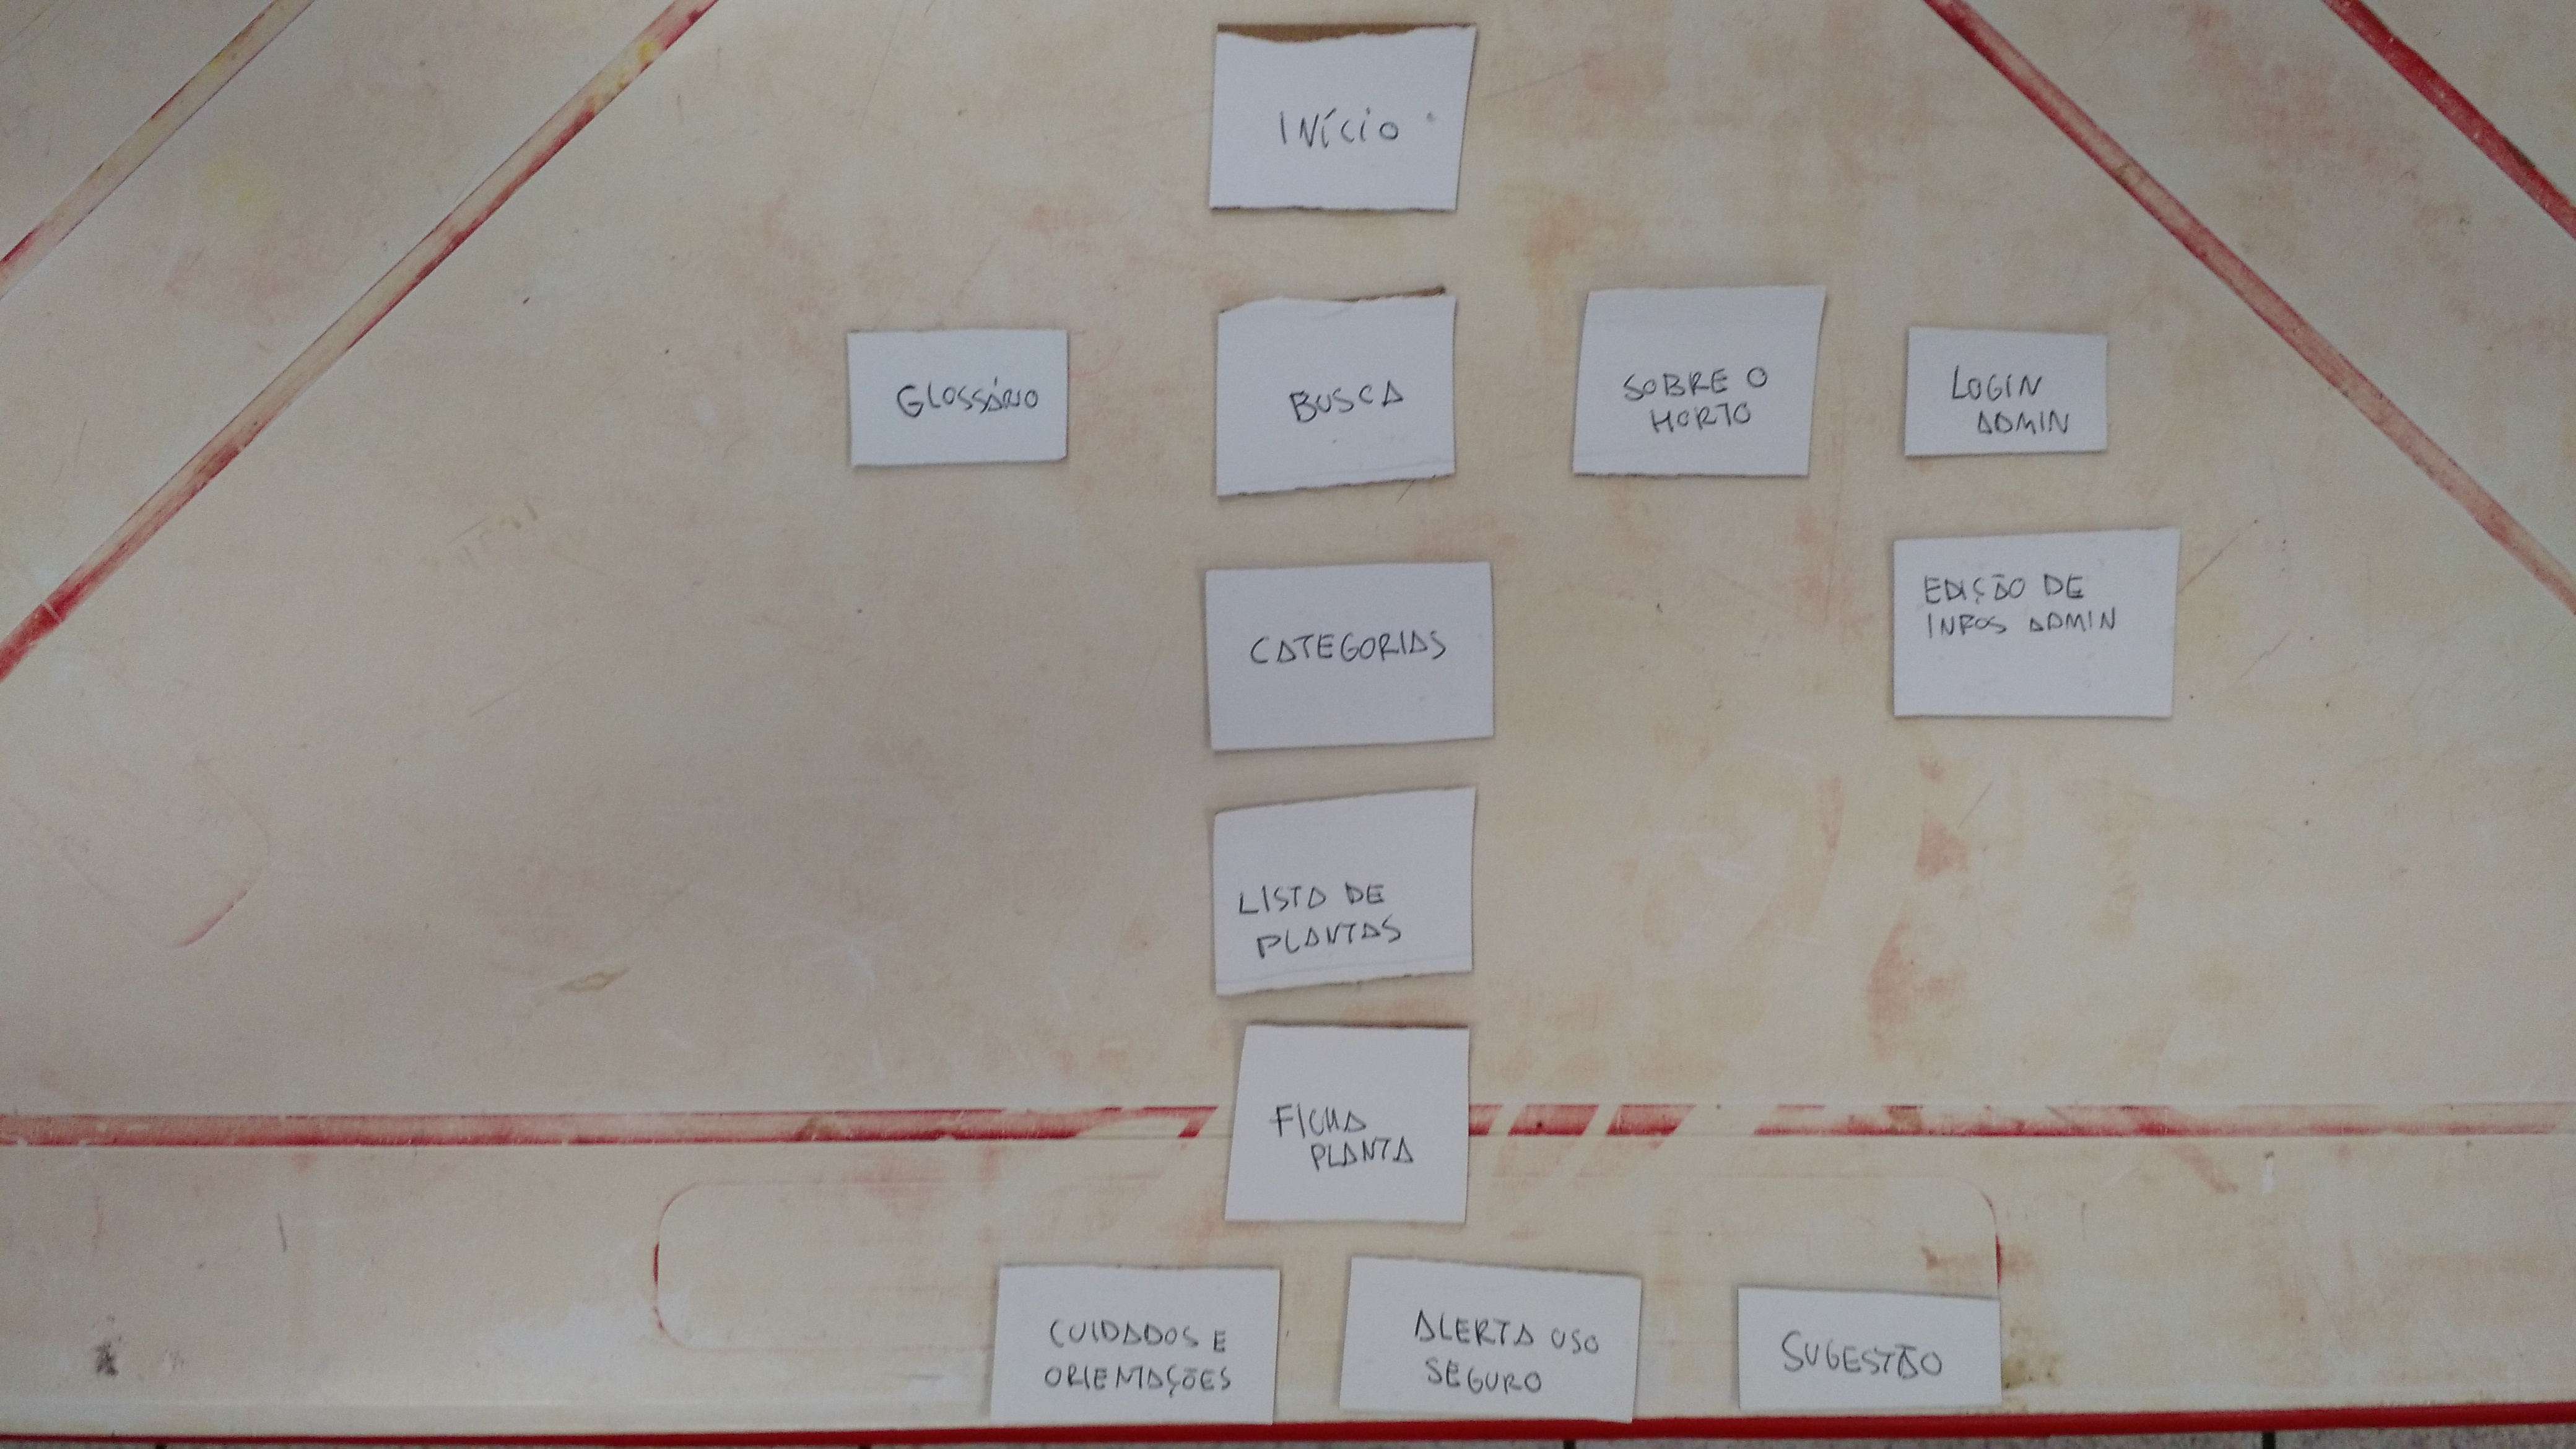 INÍCIO
GLOSSÁRIO
BUSCA
SOBRE O
HORTO
LOGIN
ADMIN
CATEGORIAS
EDIÇÃO DE
INFOS ADMIN
LISTA DE
PLANTAS
FICHA
PLANTA
CUIDADOS E
ORIENTAÇÕES
ALERTA USO
SEGURO
SUGESTÃO